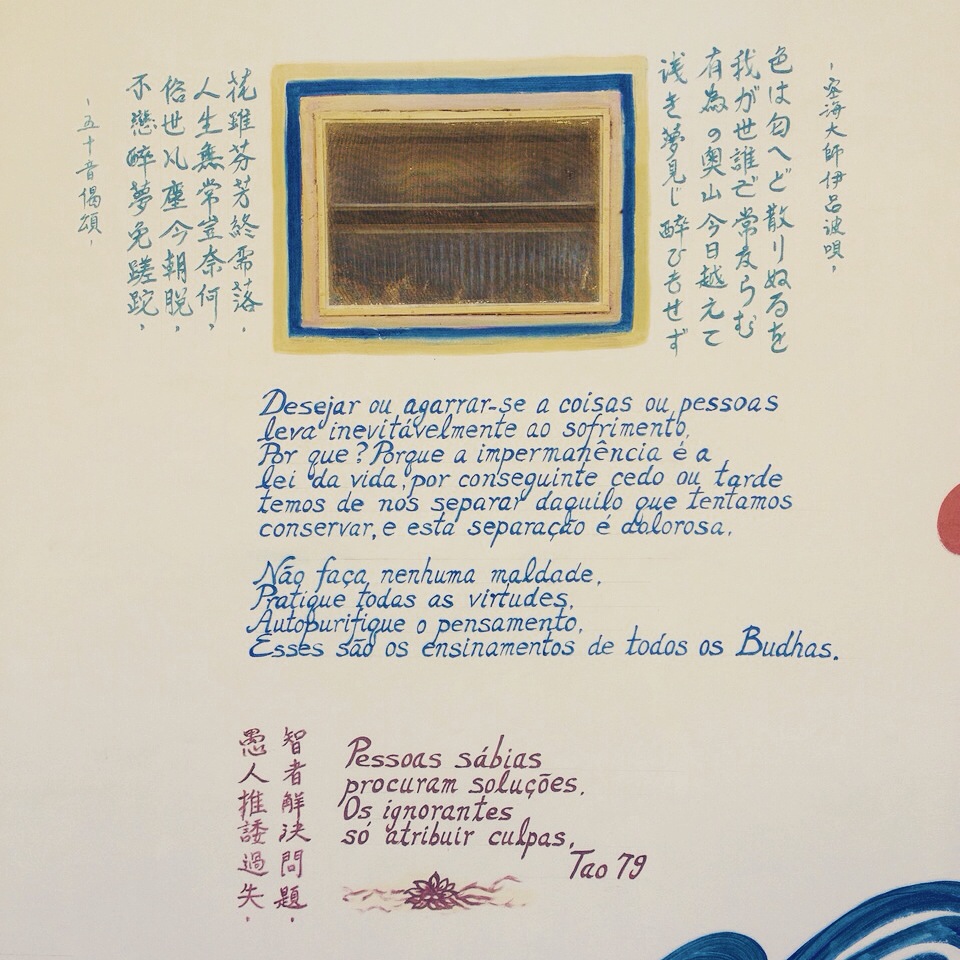 -空海大師伊呂波唄，
色は匂へど散りぬるを
我が世誰ぞ常ならむ
有為の奥山今日越えて
浅き夢見じ酔ひもせず
花雖芬芳終需落，
人生無常豈奈何，
俗世凡塵今朝脱，
不戀醉夢免蹉跎，
-五十音偈頌，
Desejar ou agarrar-se a coisas ou pessoas
leva inevitávelmente ao sofrimento.
Por que? Porque a impermanência é a
lei da vida, por conseguinte cedo ou tarde
temos de nos separar daquilo que tentamos
conservar, e esta separação é dolorosa.
Não faça nenhuma maldade.
Pratique todas as virtudes.
Autopurifique o pensamento.
Esses são os ensinamentos de todos os Budhas.
智者解決問題，
愚人推諉過失，
Pessoas sábias
procuram soluções.
Os ignorantes
só atribuir culpas.
Tao 79